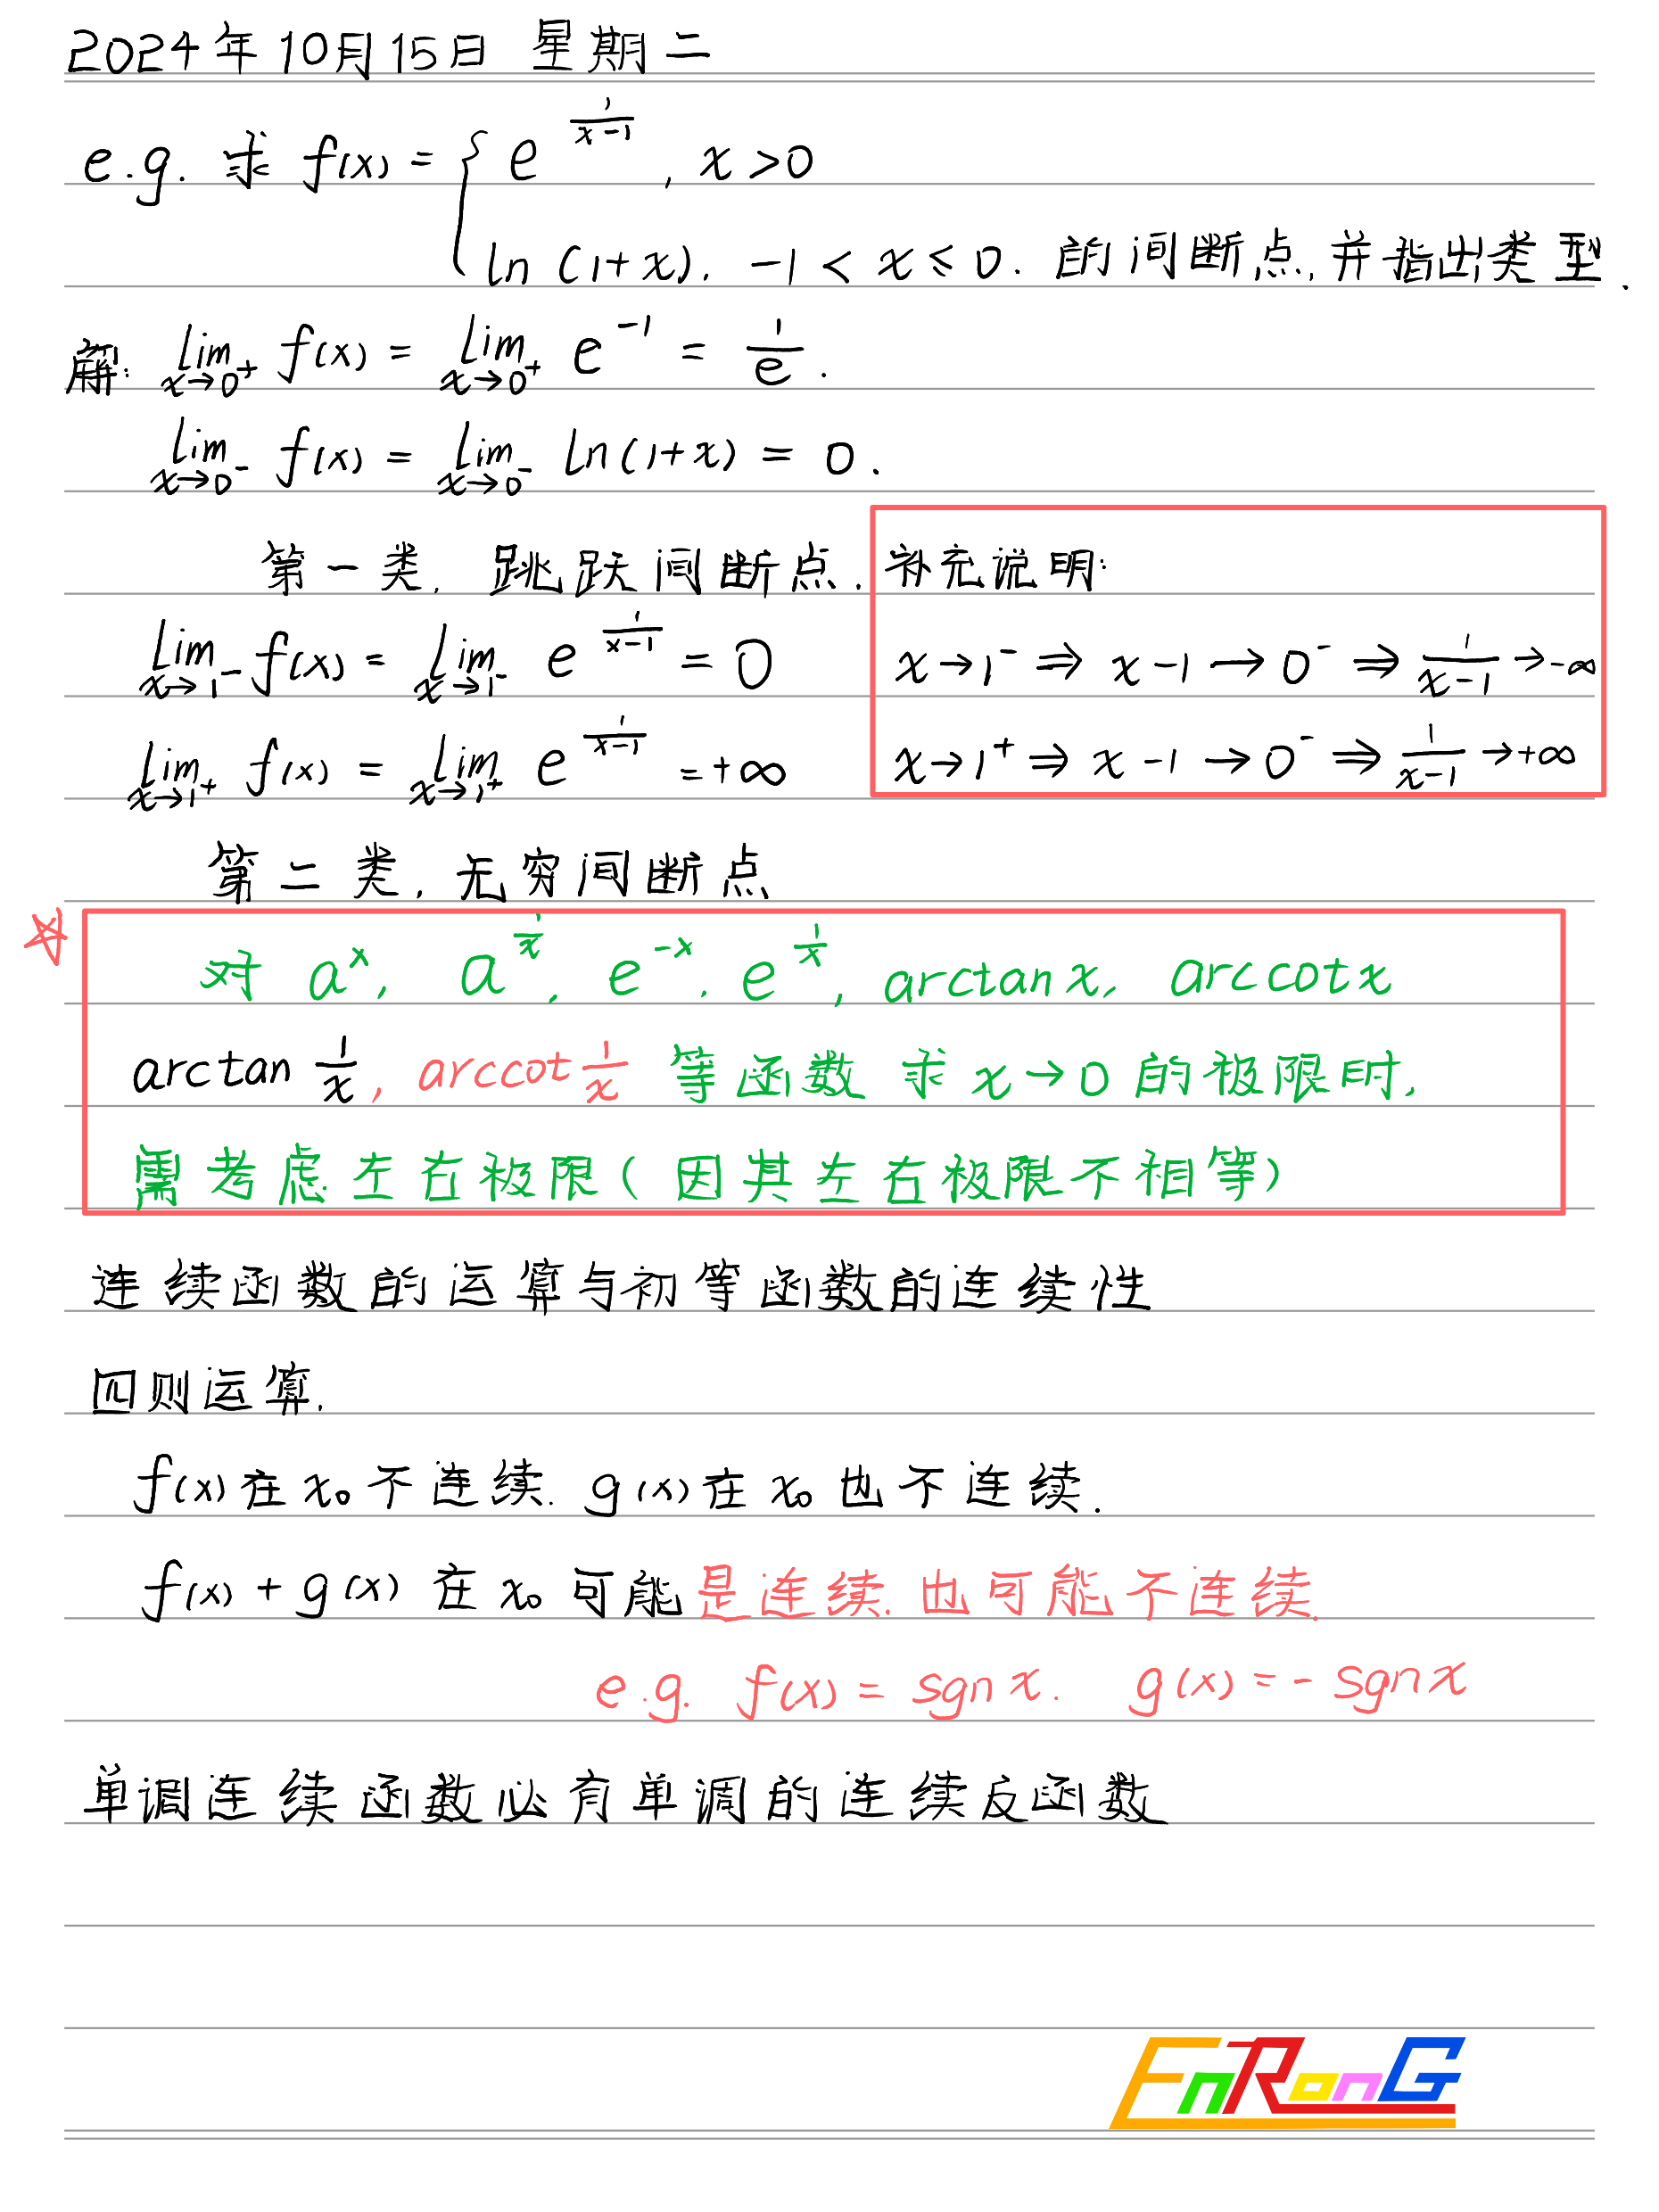 2024年10月15日 星期二
e.g. 求 f(x) = { e^{\frac{1}{x-1}}, x>0
ln(1+x), -1<x≤0. 的间断点,并指出类型.
解: lim_{x→0⁺} f(x) = lim_{x→0⁺} e^{-1} = \frac{1}{e}.
lim_{x→0⁻} f(x) = lim_{x→0⁻} ln(1+x) = 0.
第一类, 跳跃间断点.
lim_{x→1⁻} f(x) = lim_{x→1⁻} e^{\frac{1}{x-1}} = 0
lim_{x→1⁺} f(x) = lim_{x→1⁺} e^{\frac{1}{x-1}} = +∞
补充说明:
x→1⁻ ⇒ x-1→0⁻ ⇒ \frac{1}{x-1}→-∞
x→1⁺ ⇒ x-1→0⁻ ⇒ \frac{1}{x-1}→+∞
第二类, 无穷间断点
☆ 对 a^x, a^{\frac{1}{x}}, e^{-x}, e^{\frac{1}{x}}, arctan x, arccot x
arctan \frac{1}{x}, arccot \frac{1}{x} 等函数 求 x→0 的极限时,
需考虑左右极限(因其左右极限不相等)
连续函数的运算与初等函数的连续性
四则运算.
f(x)在x₀不连续. g(x)在x₀也不连续.
f(x)+g(x)在x₀可能是连续.也可能不连续.
e.g. f(x) = sgn x. g(x) = -sgn x
单调连续函数必有单调的连续反函数
EnRonG